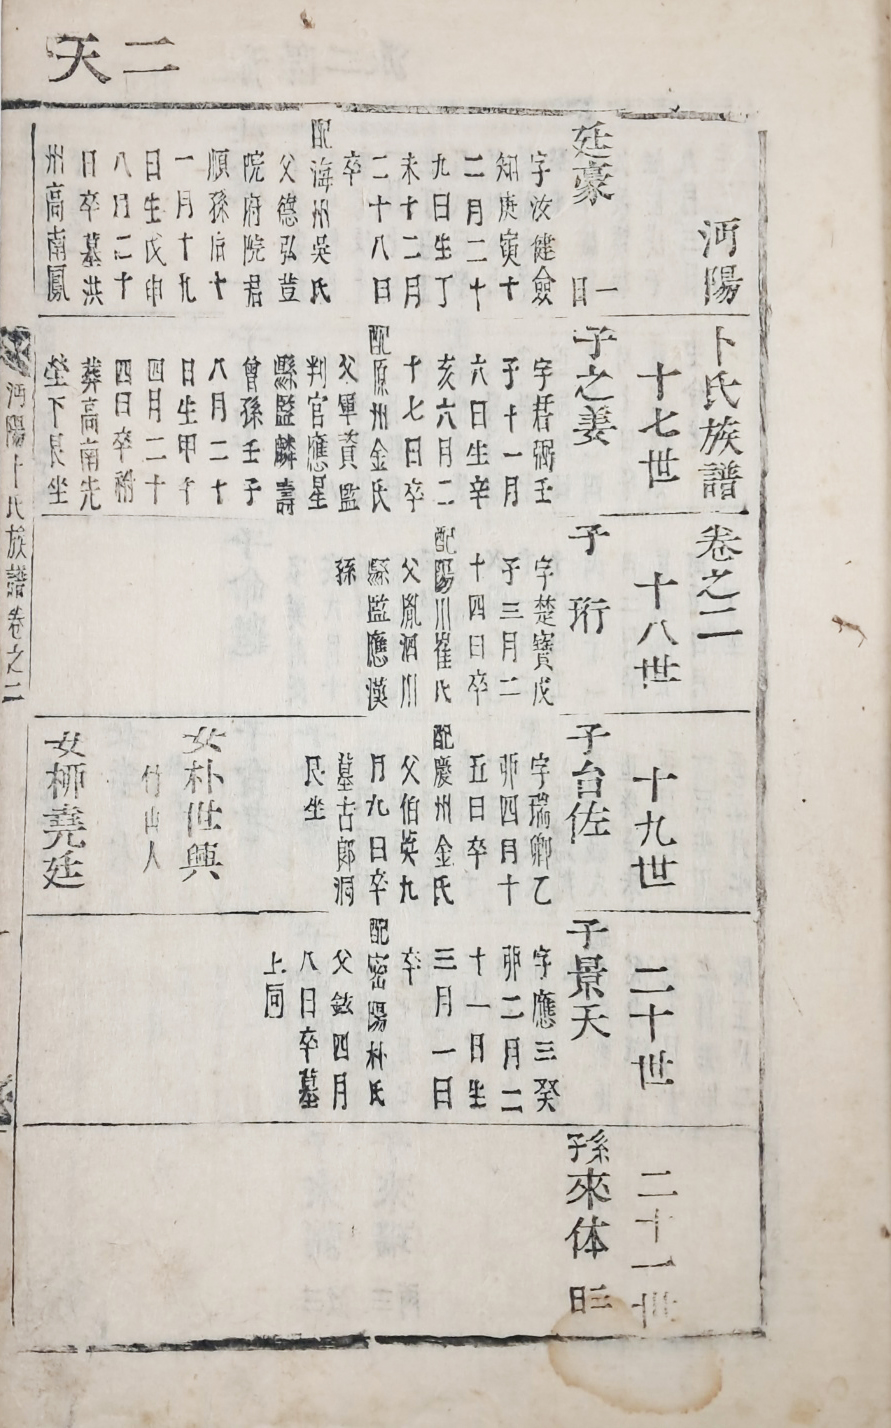 二天
沔陽卜氏族譜卷之二
廷豪
一曰
字汝健僉
知庚寅十
二月二十
九日生丁
未十二月
二十八日
卒
配海州吳氏
父德弘豈
院府院君
順孫庶十
一月十九
日生戊申
八月二十
日卒墓洪
州高南鳳
十七世
子之姜
字君弼壬
子十一月
六日生辛
亥六月二
十七日卒
配原州金氏
父軍資監
判官應星
縣監麟壽
曾孫壬子
八月二十
日生甲午
四月二十
四日卒祔
葬高南先
塋下艮坐
十八世
子珩
字楚寶戊
子三月二
十四日卒
配陽川崔氏
父胤泗川
縣監應漢
孫
十九世
子台佐
字瑞卿乙
卯四月十
五日卒
配慶州金氏
父伯英九
月九日卒
墓古郎洞
艮坐
女朴世興
竹山人
女柳堯廷
二十世
子景天
字應三癸
卯二月二
十一日生
三月一日
卒
配密陽朴氏
父鉉四月
八日卒墓
上同
二十一世
系子來体
三曰
沔陽卜氏族譜卷之二